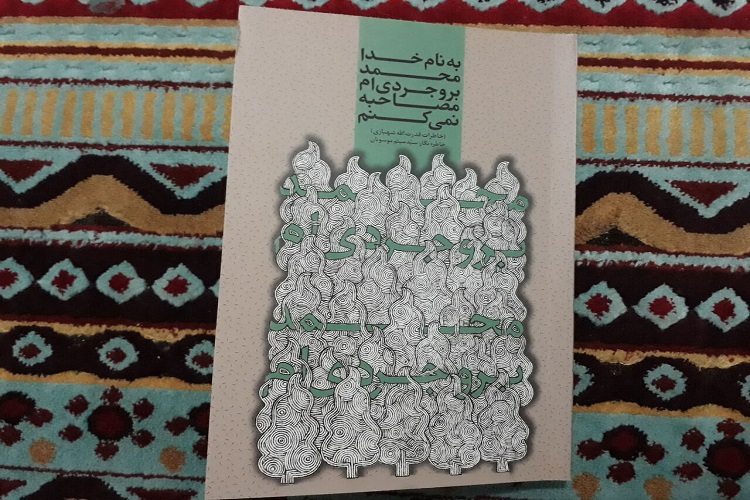 به نام خدا
محمد
بروجردی‌ام
مصاحبه
نمی‌کنم
(خاطرات قدرت الله شهبازی)
خاطره نگار: سید میثم موسویان
محمد
بروجردی ام
محمد
بروجردی ام